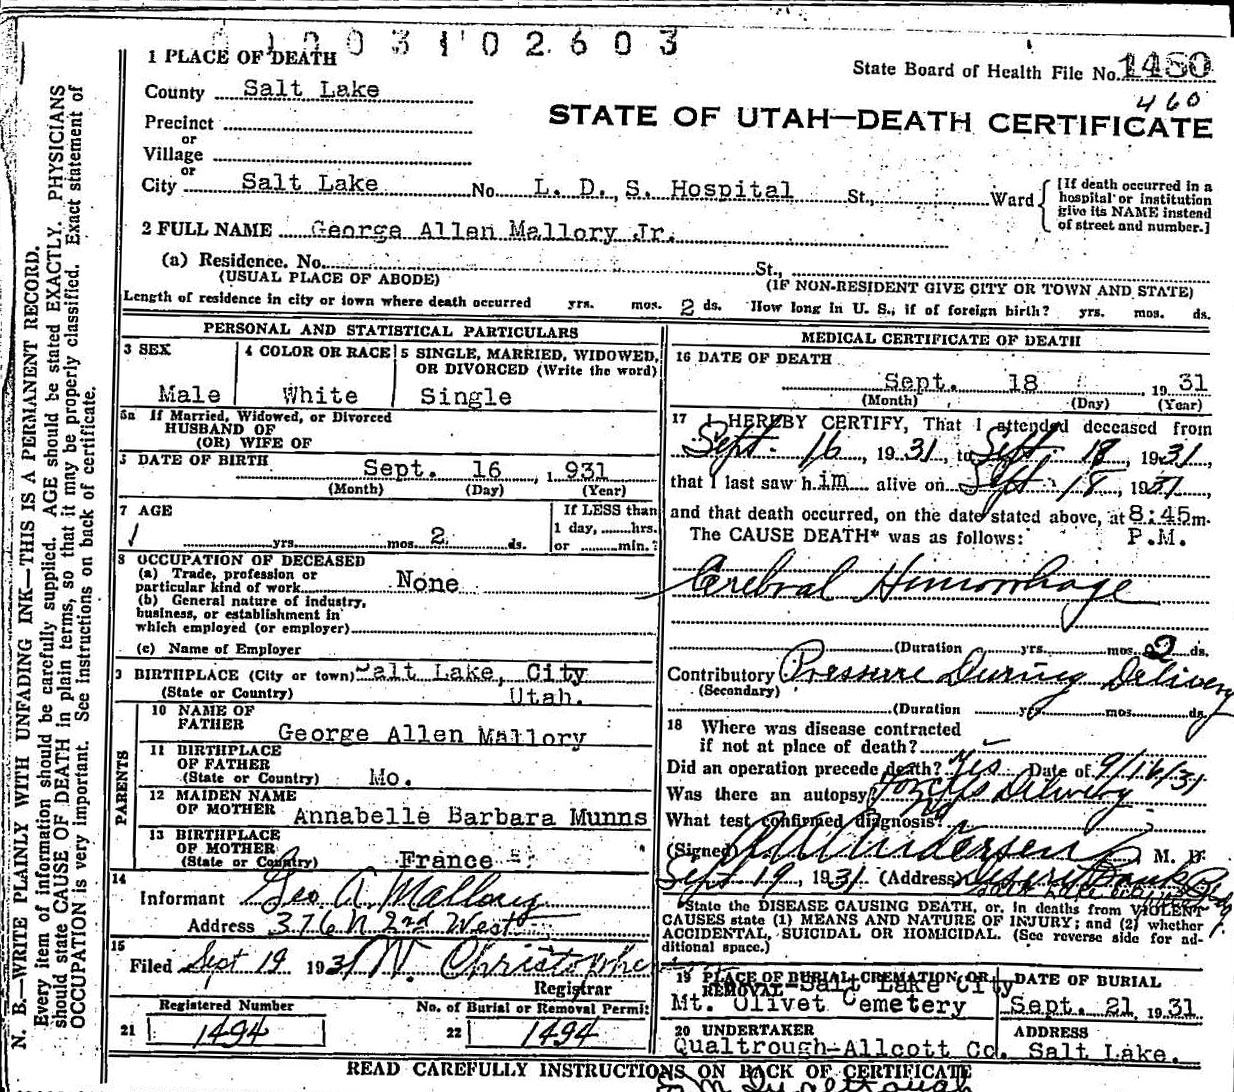 1 2 0 3 1 0 2 6 0 3
1 PLACE OF DEATH
State Board of Health File No. 1480
460
County Salt Lake
STATE OF UTAH—DEATH CERTIFICATE
Precinct
or
Village
or
City Salt Lake No. L. D. S. Hospital St., Ward
[If death occurred in a hospital or institution give its NAME instead of street and number.]
2 FULL NAME George Allen Mallory Jr.
(a) Residence. No. St.,
(USUAL PLACE OF ABODE) (IF NON-RESIDENT GIVE CITY OR TOWN AND STATE)
Length of residence in city or town where death occurred yrs. mos. 2 ds. How long in U. S., if of foreign birth? yrs. mos. ds.
PERSONAL AND STATISTICAL PARTICULARS
3 SEX
Male
4 COLOR OR RACE
White
5 SINGLE, MARRIED, WIDOWED,
OR DIVORCED (Write the word)
Single
5a If Married, Widowed, or Divorced
HUSBAND OF
(OR) WIFE OF
DATE OF BIRTH Sept. 16, 1931
(Month) (Day) (Year)
7 AGE
If LESS than
1 day, hrs.
yrs. mos. 2 ds. or min.?
8 OCCUPATION OF DECEASED
(a) Trade, profession or
particular kind of work None
(b) General nature of industry,
business, or establishment in
which employed (or employer)
(c) Name of Employer
9 BIRTHPLACE (City or town) Salt Lake, City
(State or Country) Utah.
PARENTS
10 NAME OF
FATHER George Allen Mallory
11 BIRTHPLACE
OF FATHER
(State or Country) Mo.
12 MAIDEN NAME
OF MOTHER Annabelle Barbara Munns
13 BIRTHPLACE
OF MOTHER
(State or Country) France
14
Informant Geo A. Mallory
Address 376 N 2nd West
15
Filed Sept 19 1931 W. Christopher
Registrar
Registered Number No. of Burial or Removal Permit
21 1494 22 1494
MEDICAL CERTIFICATE OF DEATH
16 DATE OF DEATH
Sept. 18 1931
(Month) (Day) (Year)
17 I HEREBY CERTIFY, That I attended deceased from
Sept. 16, 1931, to Sept. 18, 1931,
that I last saw him alive on Sept 18, 1931,
and that death occurred, on the date stated above, at 8:45 m.
The CAUSE DEATH* was as follows: P.M.
Cerebral Himorrhage
(Duration yrs. mos. 2 ds.
Contributory Pressure During Delivery
(Secondary)
(Duration yrs. mos. ds.
18 Where was disease contracted
if not at place of death?
Did an operation precede death? Yes Date of 9/16/31
Was there an autopsy Forceps Delivery
What test confirmed diagnosis? no
(Signed) Andersen, M. D.
Sept 19, 1931 (Address) Deseret Bank Bldg
*State the DISEASE CAUSING DEATH, or, in deaths from VIOLENT
CAUSES state (1) MEANS AND NATURE OF INJURY; and (2) whether
ACCIDENTAL, SUICIDAL OR HOMICIDAL. (See reverse side for ad-
ditional space.)
19 PLACE OF BURIAL, CREMATION, OR
REMOVAL Salt Lake City
Mt. Olivet Cemetery
DATE OF BURIAL
Sept. 21, 1931
20 UNDERTAKER
Qualtrough-Allcott Co.
ADDRESS
Salt Lake.
READ CAREFULLY INSTRUCTIONS ON BACK OF CERTIFICATE
N. B.—WRITE PLAINLY WITH UNFADING INK—THIS IS A PERMANENT RECORD.
Every item of information should be carefully supplied. AGE should be stated EXACTLY. PHYSICIANS
should state CAUSE OF DEATH in plain terms, so that it may be properly classified. Exact statement of
OCCUPATION is very important. See instructions on back of certificate.